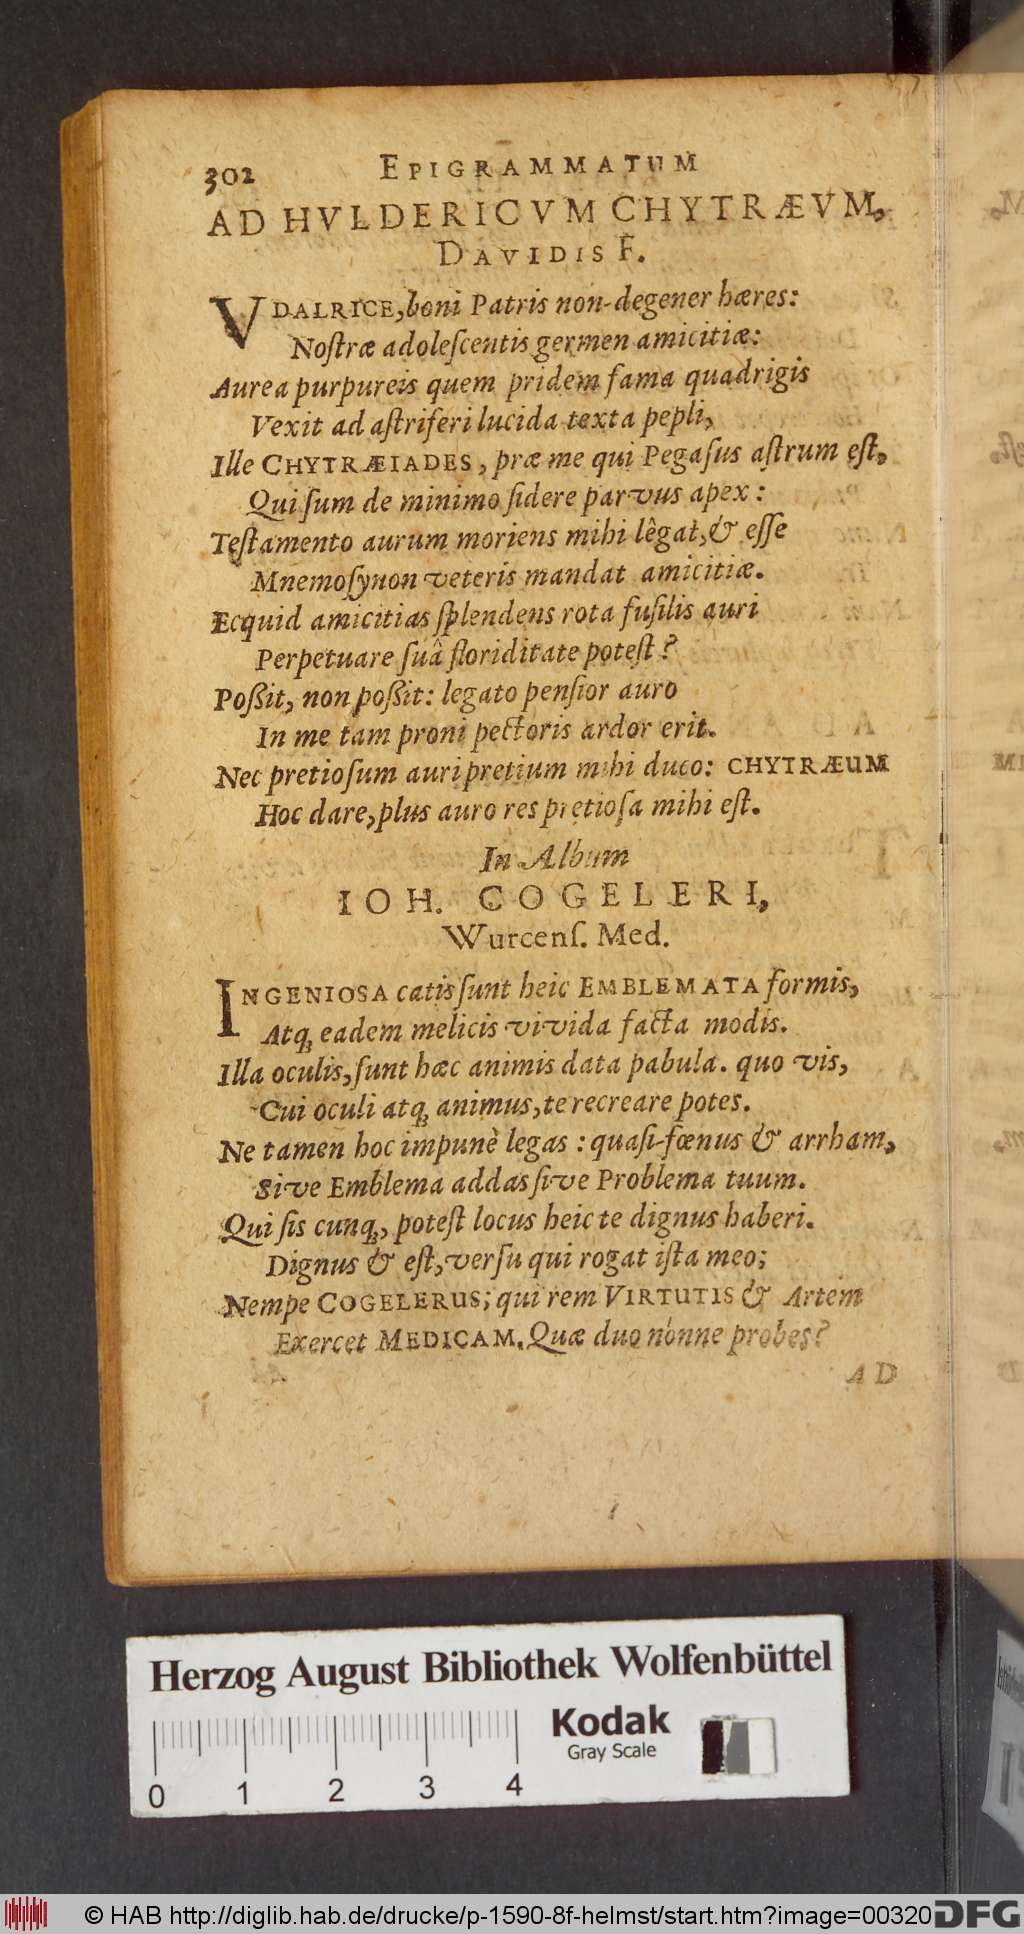 302 EPIGRAMMATUM
AD HVLDERICVM CHYTRÆVM,
DAVIDIS F.
VDALRICE, boni Patris non-degener hæres:
Noſtræ adoleſcentis germen amicitiæ:
Aurea purpureis quem pridem fama quadrigis
Vexit ad aſtriferi lucida texta pepli,
Ille CHYTRÆIADES, præ me qui Pegaſus aſtrum eſt,
Qui ſum de minimo ſidere parvus apex:
Teſtamento aurum moriens mihi lêgat, & eſſe
Mnemoſynon veteris mandat amicitiæ.
Ecquid amicitias ſplendens rota fuſilis auri
Perpetuare ſuâ floriditate poteſt?
Poßit, non poßit: legato penſior auro
In me tam proni pectoris ardor erit.
Nec pretioſum auri pretium mihi duco: CHYTRÆUM
Hoc dare, plus auro res pretioſa mihi eſt.
In Album
IOH. COGELERI,
Wurcenſ. Med.
INGENIOSA catis ſunt heic EMBLEMATA formis,
Atq; eadem melicis vivida facta modis.
Illa oculis, ſunt hæc animis data pabula. quo vis,
Cui oculi atq; animus, te recreare potes.
Ne tamen hoc impunè legas: quaſi-fœnus & arrham,
Sive Emblema addas ſive Problema tuum.
Qui ſis cunq;, poteſt locus heic te dignus haberi.
Dignus & eſt, verſu qui rogat iſta meo;
Nempe COGELERUS; qui rem VIRTUTIS & Artem
Exercet MEDICAM. Quæ duo nónne probes?
AD
Herzog August Bibliothek Wolfenbüttel
Kodak
Gray Scale
0 1 2 3 4
© HAB http://diglib.hab.de/drucke/p-1590-8f-helmst/start.htm?image=00320
DFG